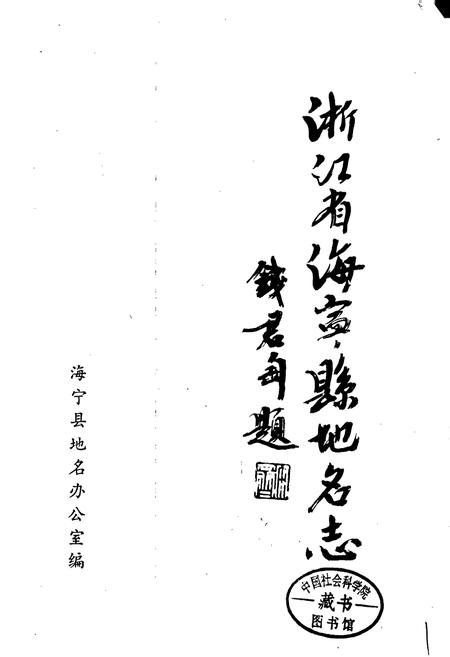 浙江省海寧縣地名志
錢君匋題
海宁县地名办公室编
中国社会科学院
藏书
图书馆